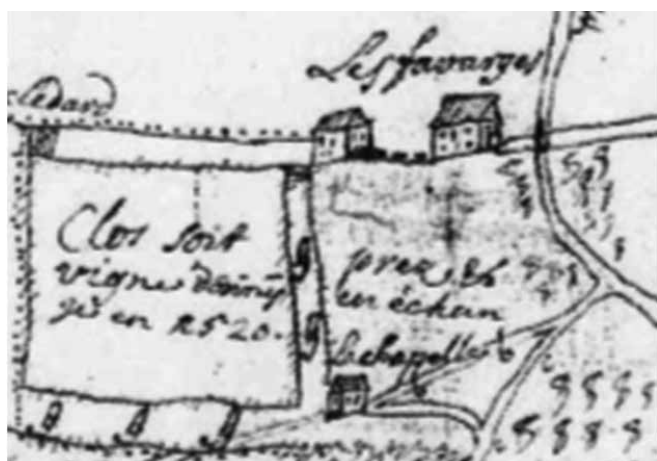 Les favarges
Cledard
Clos soit
vigne
en 1520.
prez &
en échun
la chapelle